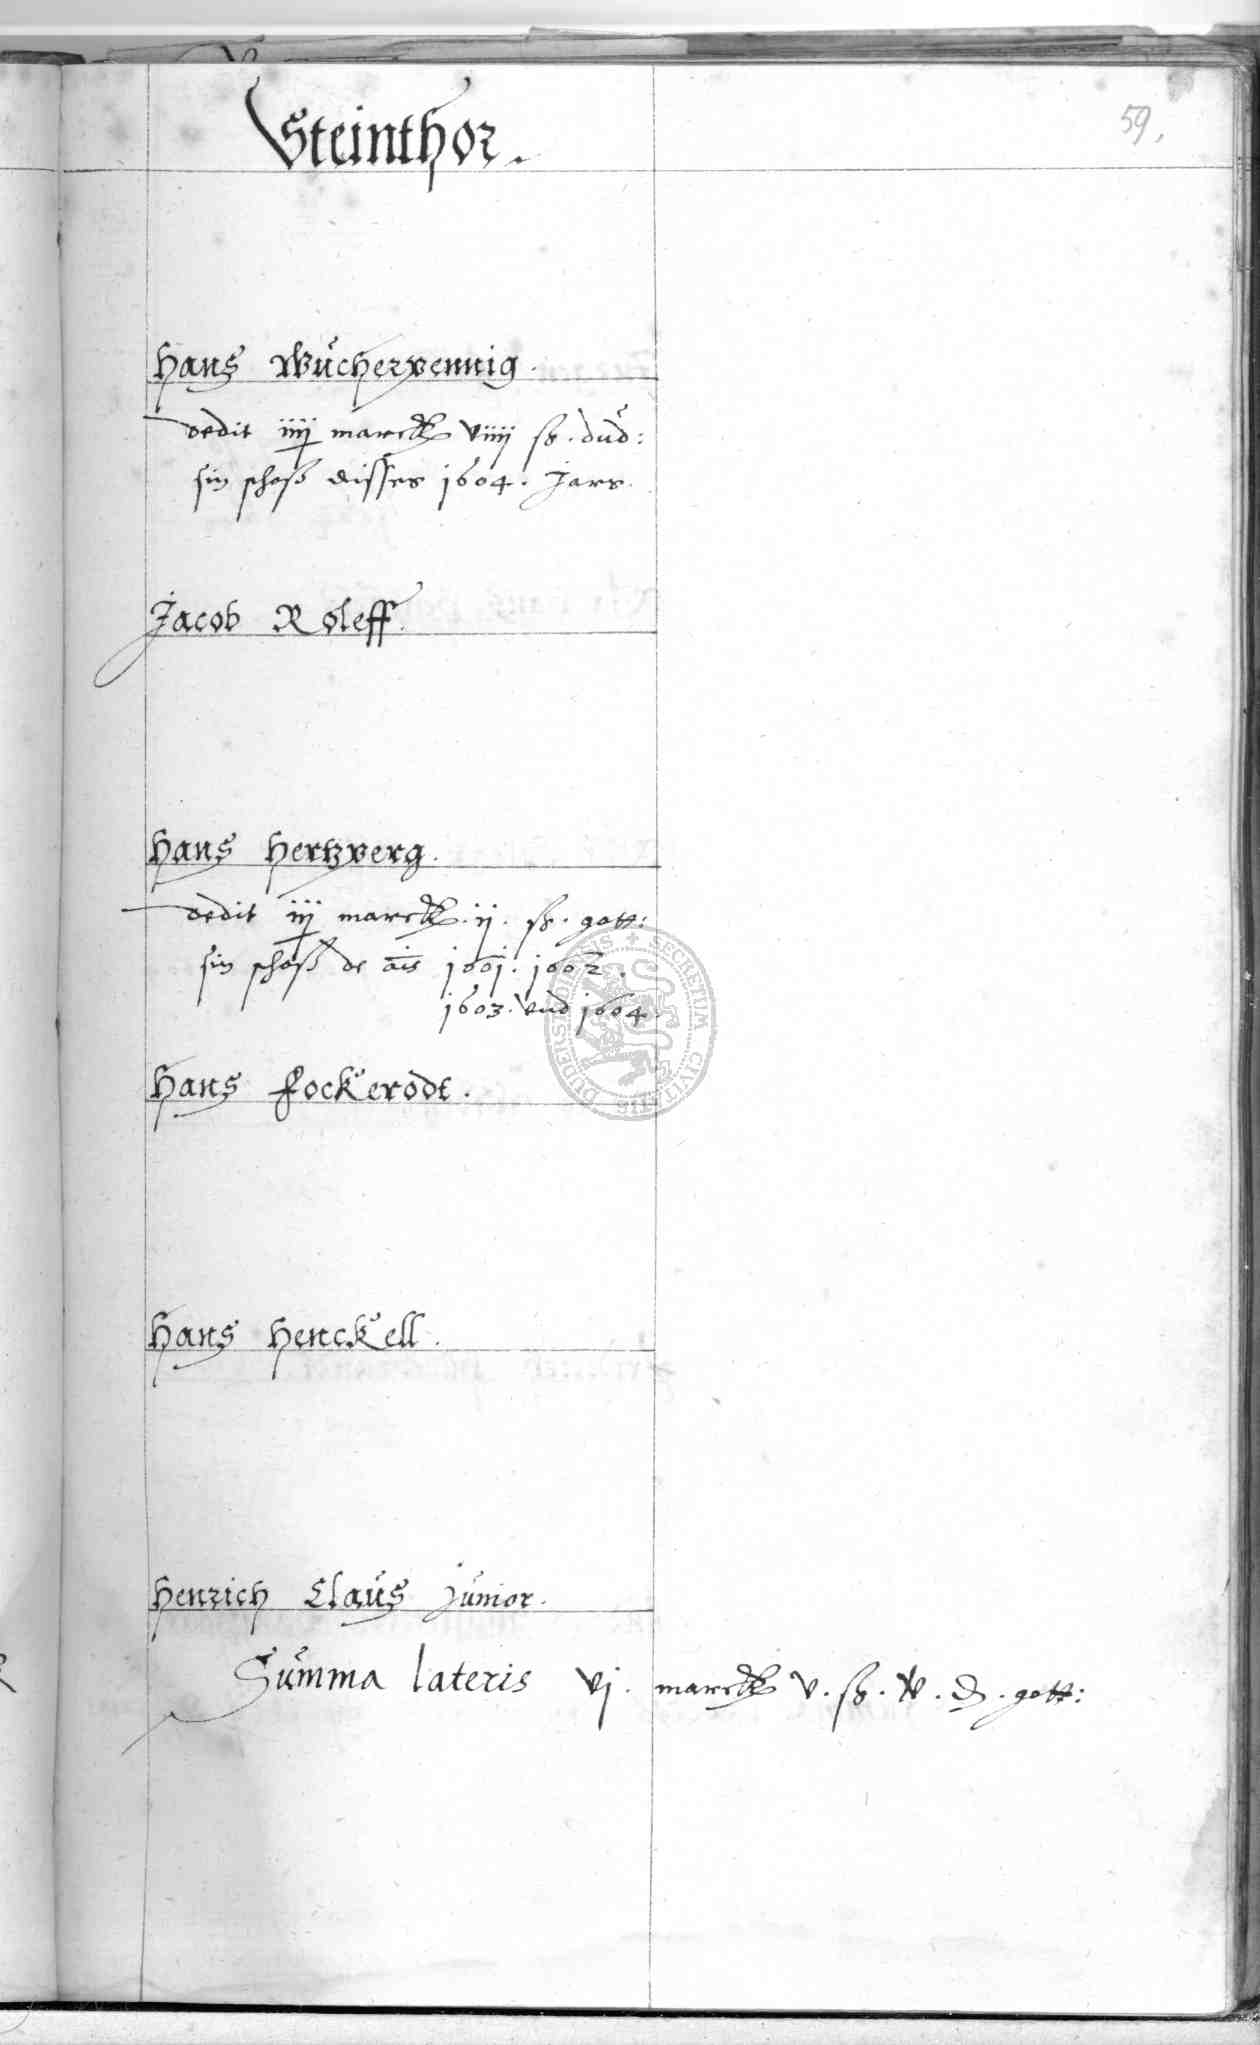 Steinthor.
59.
Hans Wücherpennig.
dedit iiij marck viiij ß. dud:
sin schoß disses 1604. Jars.
Jacob Roleff.
Hans Hertzberg.
dedit iij marck. ij. ß. gott:
sin schoß de ais 1601. 1602.
1603. vnd 1604.
Hans Fockerodt.
Hans Henckell.
Henrich Claus junior.
Summa lateris vj. marck v. ß. v. d. gott:
SECRETUM CIVITATIS DUDERSTADIENSIS